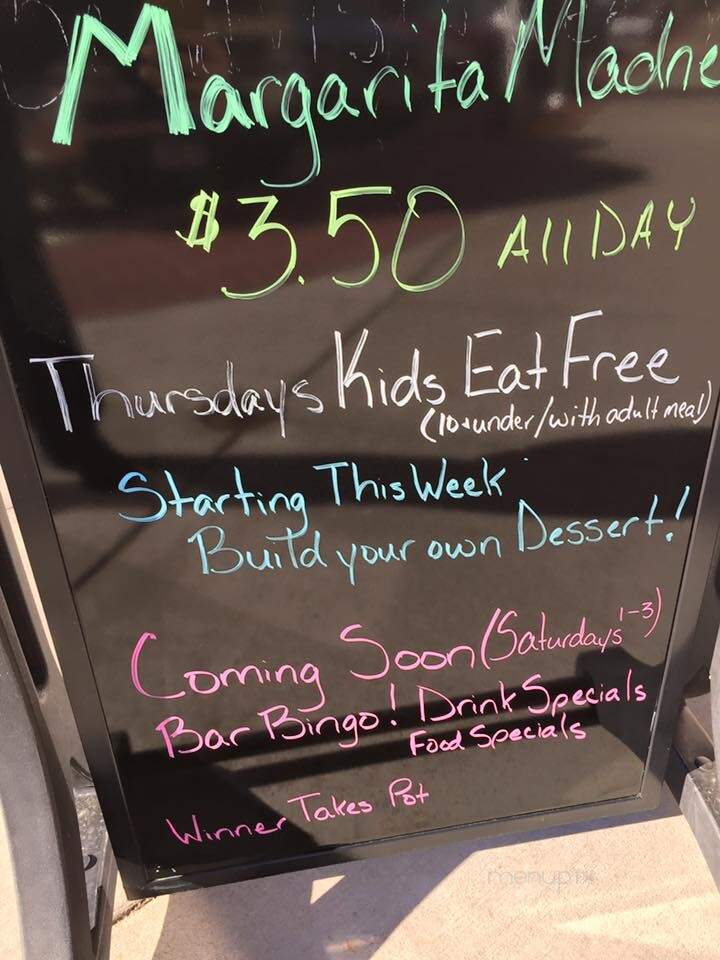 Margarita Madne
$3.50 All DAY
Thursdays Kids Eat Free
(10+under/with adult meal)
Starting This Week
Build your own Dessert!
Coming Soon (Saturdays 1-3)
Bar Bingo! Drink Specials
Food Specials
Winner Takes Pot
menupix